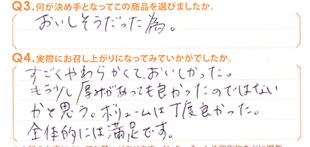 Q3.何が決め手となってこの商品を選びましたか。
おいしそうだった為。
Q4.実際にお召し上がりになってみていかがでしたか。
すごくやわらかくて、おいしかった。
もう少し厚みがあっても良かったのではない
かと思う。ボリュームは丁度良かった。
全体的には満足です。